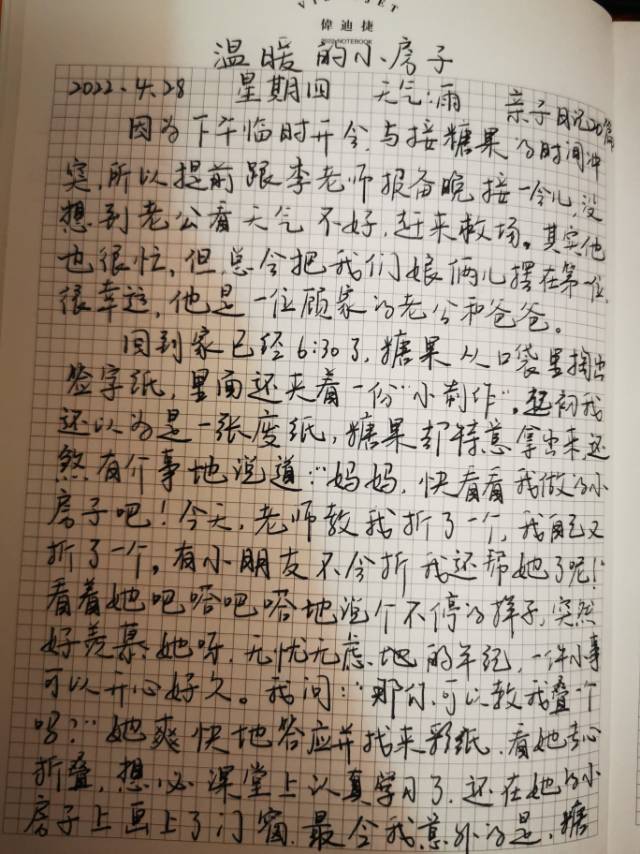 VI JET
偉迪捷
2022 NOTEBOOK
温暖的小房子
2022.4.28 星期四 天气:雨 亲子日记20篇
因为下午临时开会,与接糖果的时间冲
突,所以提前跟李老师报备晚接一会儿,没
想到老公看天气不好,赶来救场。其实他
也很忙,但总会把我们娘俩儿摆在第一位,
很幸运,他是一位顾家的老公和爸爸。
回到家已经6:30了,糖果从口袋里掏出
签字纸,里面还夹着一份“小制作”。起初我
还以为是一张废纸,糖果却特意拿出来还
煞有介事地说道:“妈妈,快看看我做的小
房子吧!今天,老师教我折了一个,我自己又
折了一个。有小朋友不会折我还帮她了呢!”
看着她吧嗒吧嗒地说个不停的样子,突然
好羡慕她呀,无忧无虑地的年纪,一件小事
可以开心好久。我问:“那你可以教我叠一个
吗?”她爽快地答应并找来彩纸,看她专心
折叠,想必课堂上认真学习了,还在她的小
房子上画上了门窗,最令我意外的是,糖